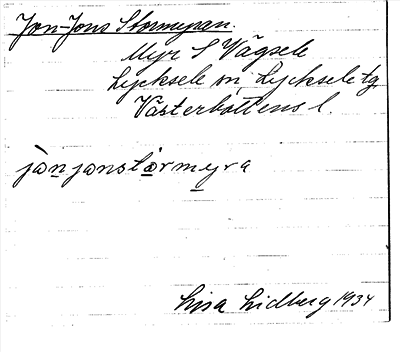 Jon-Jons Stormyran.
Myr S Vägsele
Lycksele sn, Lycksele tg
Västerbottens l.
jònjonstørmyra
Lisa Lidberg 1934